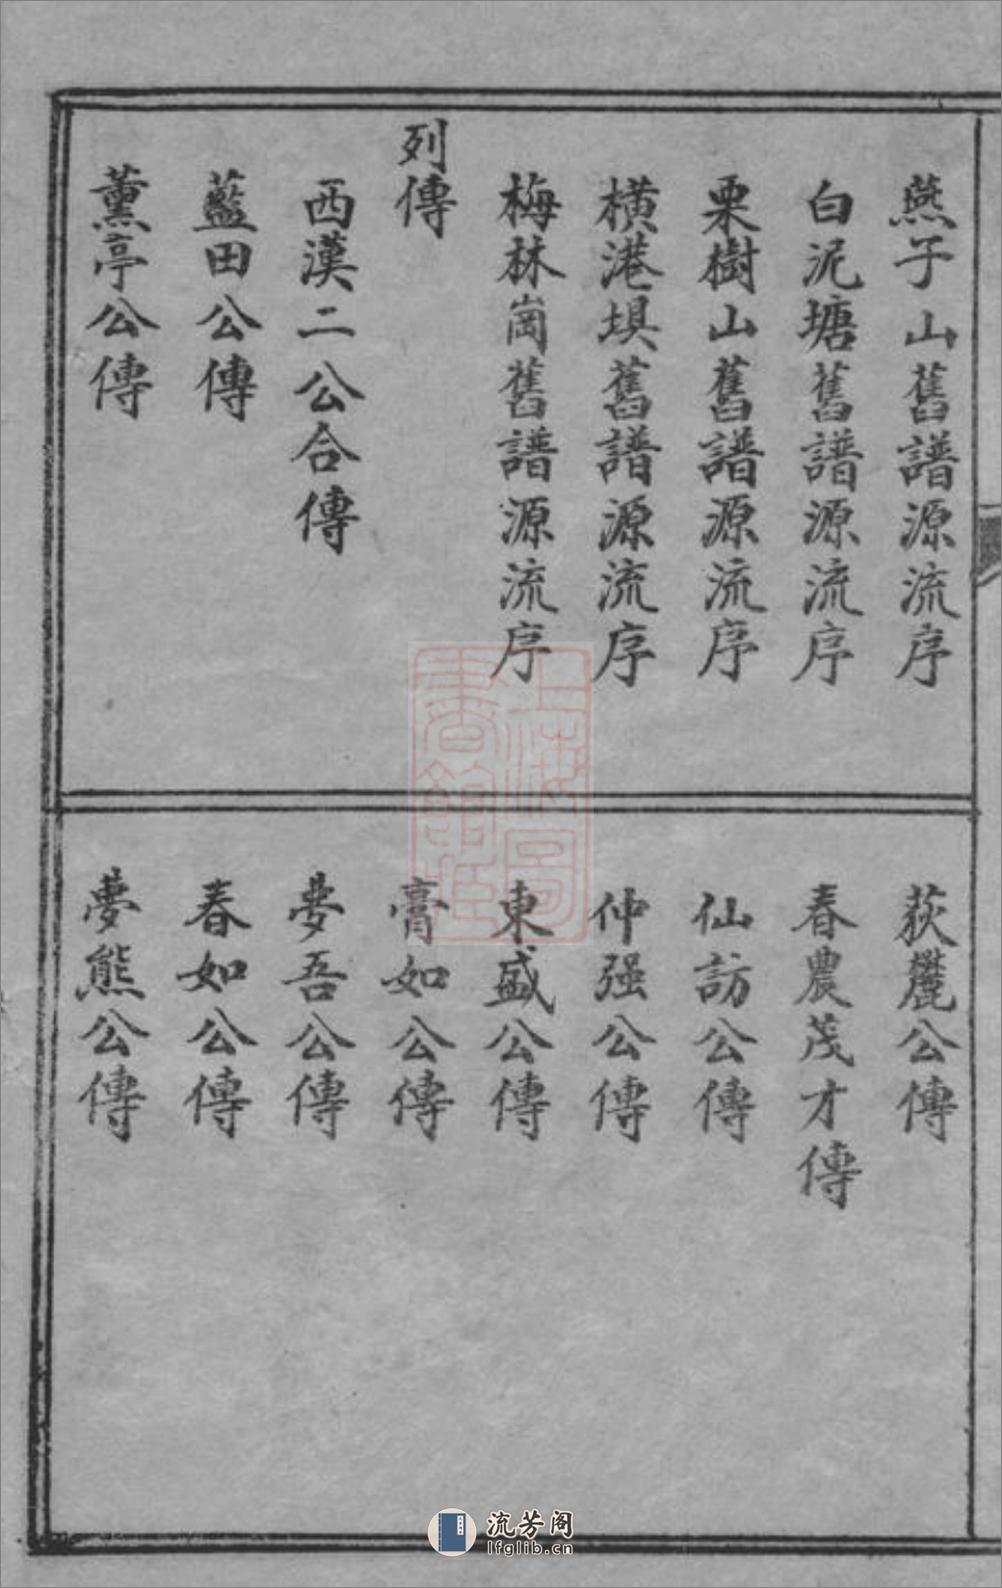 燕子山舊譜源流序
白泥塘舊譜源流序
栗樹山舊譜源流序
橫港垻舊譜源流序
梅林崗舊譜源流序
列傳
西漢二公合傳
藍田公傳
薰亭公傳
荻麓公傳
春農茂才傳
仙訪公傳
仲强公傳
東盛公傳
膏如公傳
夢吾公傳
春如公傳
夢熊公傳
上海圖
書館藏
流芳阁
lfglib.cn